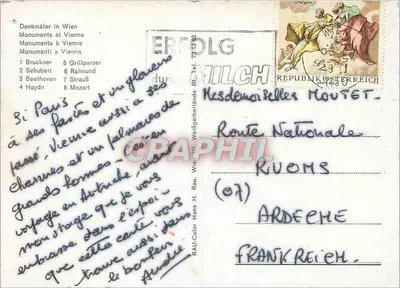 Denkmäler in Wien
Monuments at Vienna
Monuments à Vienne
Monumenti a Vienna
1 Bruckner 5 Grillparzer
2 Schubert 6 Raimund
3 Beethoven 7 Strauß
4 Haydn 8 Mozart
Si Paris
a ses fastes et un glorieux
passé, Vienne aussi a ses
charmes et un palmarès de
grands hommes.
voyage en Autriche,
mon stage que je vous
embrasse dans l'espoir
que cette carte vous
trouve aussi dans
le bonheur
André
RAU-Color Hans H. Rau, Wien
ERFOLG
MILCH
REPUBLIK ÖSTERREICH
Mesdemoiselles MOUTET.
Route Nationale
RUOMS
(07)
ARDECHE
FRANKREICH.
CPAPHIL